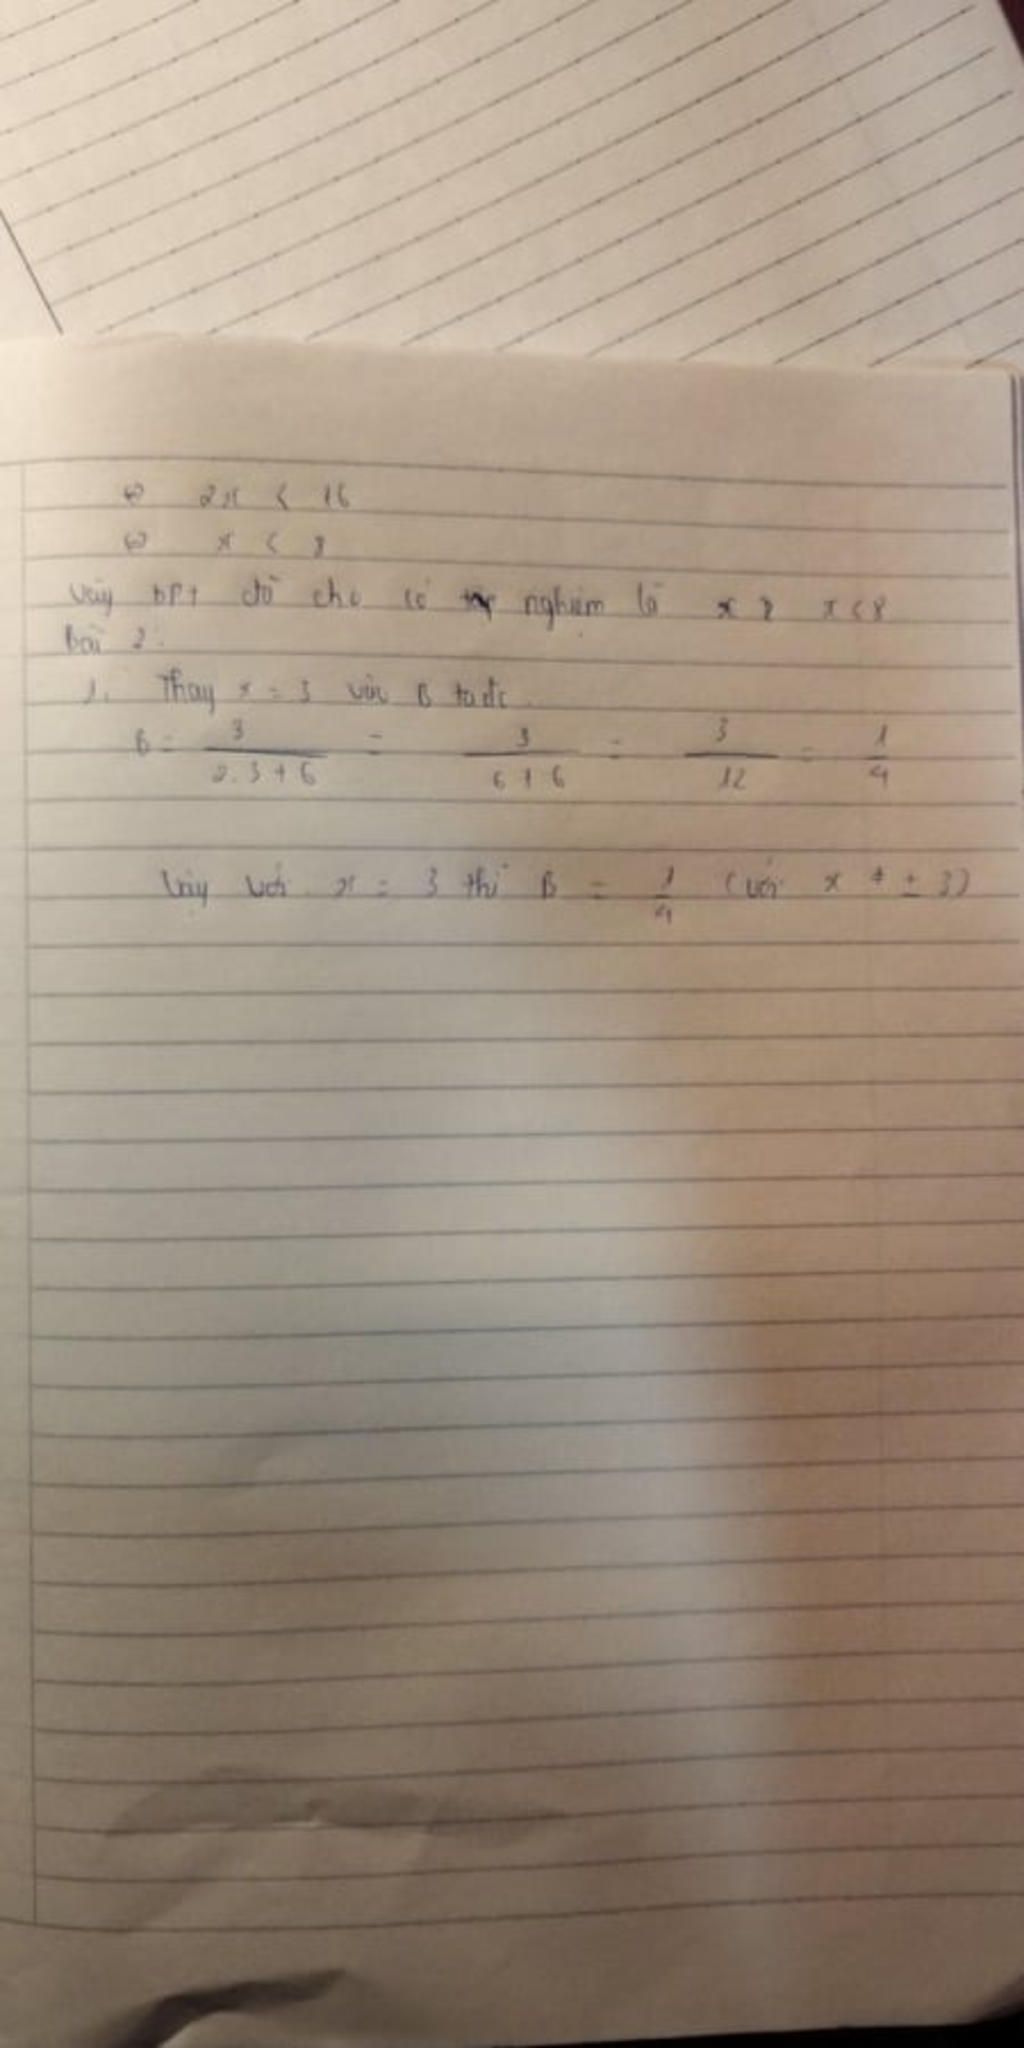 ⇔ 2x < 16
⇔ x < 8
Vậy bpt đã cho có nghiệm là x < 8
Bài 2:
1. Thay x = 3 vào B ta đc
B = 3/(2.3+6) = 3/(6+6) = 3/12 = 1/4
Vậy với x = 3 thì B = 1/4 (với x ≠ ± 3)